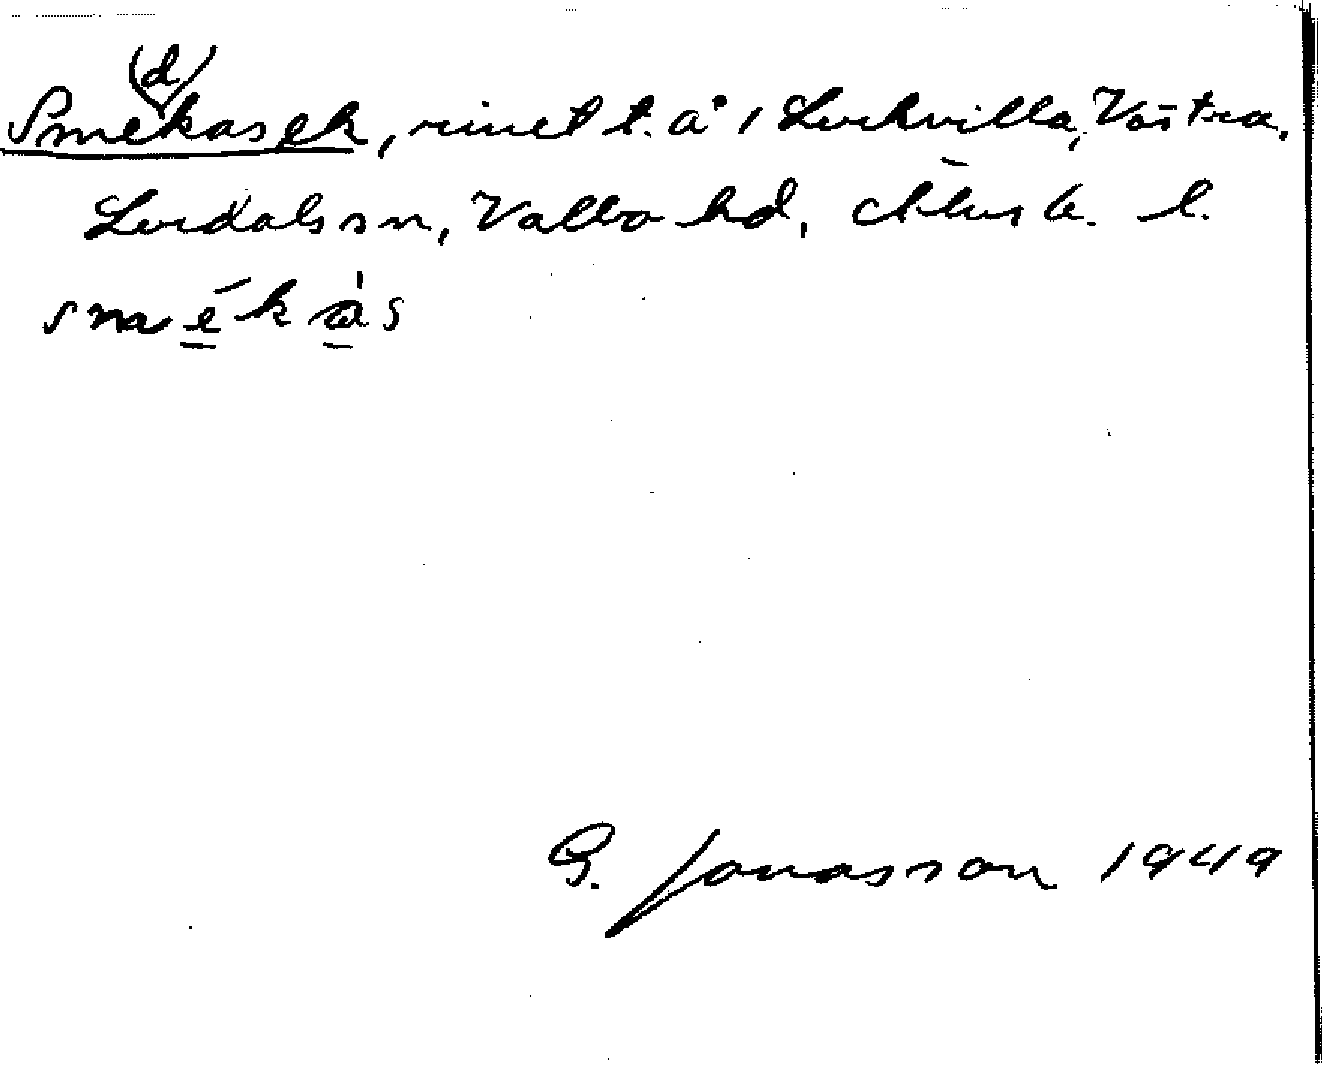 Sme(d)kasek, rinet t. å i Luckvilla, Västra,
Lerdals sn, Valbo hd, Älvsb. l.
smékàs
G. Jonasson 1949